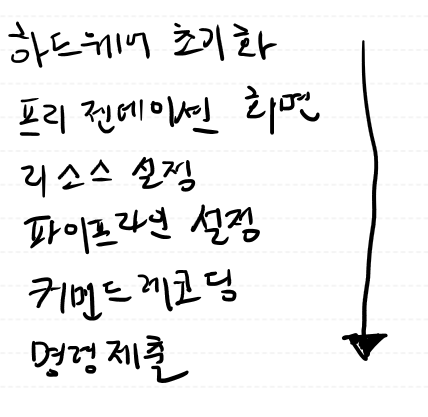 하드웨어 초기화
프리 젠테이션 화면
리소스 설정
파이프라인 설정
커맨드 레코딩
명령 제출